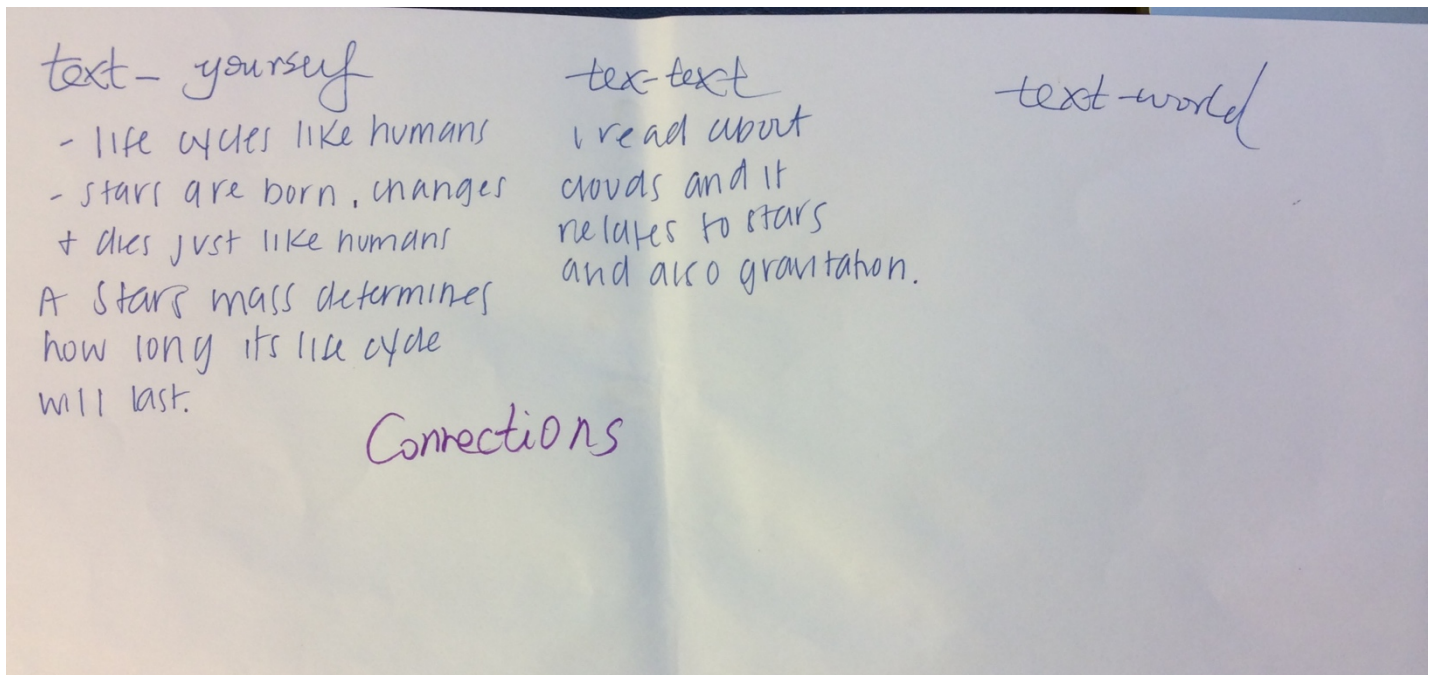 text- yourself
- life cycles like humans
- stars are born, changes
+ dies just like humans
A stars mass determines
how long its life cycle
will last.
tex-text
I read about
clouds and it
relates to stars
and also gravitation.
text-world
Connections